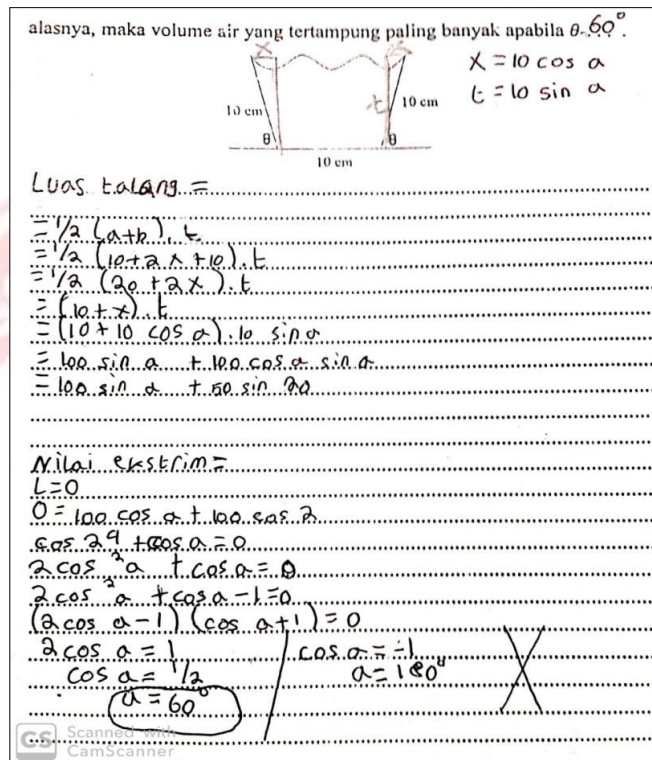 alasnya, maka volume air yang tertampung paling banyak apabila θ...60°.
x
x
X = 10 cos a
t = 10 sin a
10 cm
t
10 cm
θ
θ
10 cm
Luas talang =
= 1/2 (a+b). t
= 1/2 (10+2x+10).t
= 1/2 (20+2x).t
= (10+x).t
= (10+10 cos a).10 sin a
= 100 sin a + 100 cos a sin a
= 100 sin a + 50 sin 2a
Nilai ekstrim =
L=0
0= 100 cos a + 100 cos 2
cos 2a + cos a = 0
2 cos² a + cos a = 0
2 cos² a + cos a - 1 = 0
(2 cos a - 1) (cos a + 1) = 0
2 cos a = 1
cos a = -1
cos a = 1/2
a = 180°
a = 60°
CS Scanned with
CamScanner